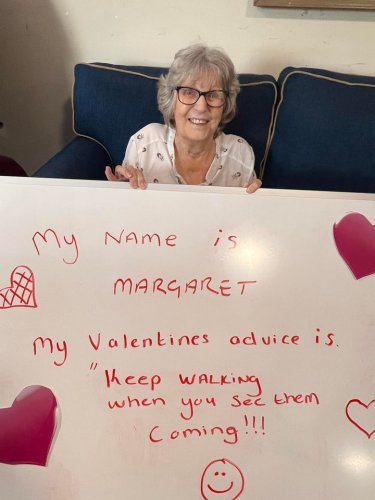 My Name is
MARGARET
My Valentines advice is.
"Keep WALKING
when you see them
Coming!!!